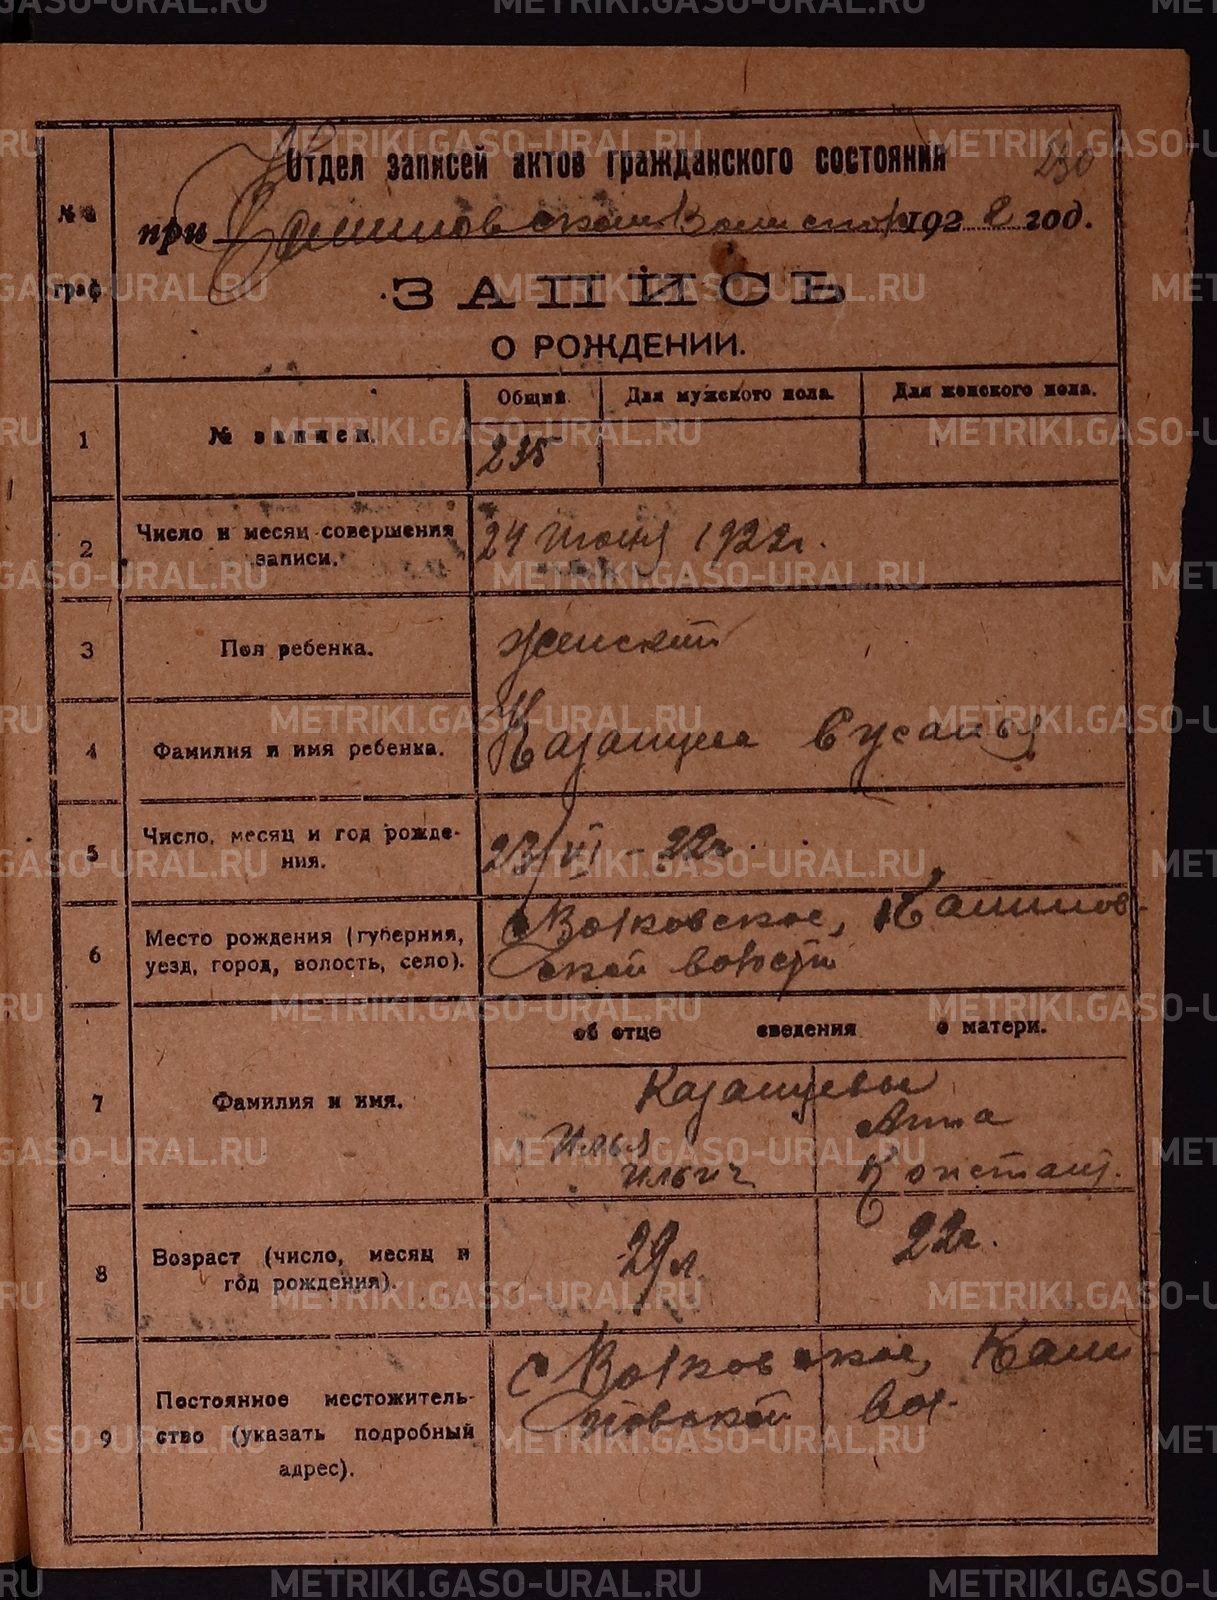 Отдел записей актов гражданского состояния 230
№№
граф
при Калиновском Волиспол. 1922 год.
ЗАПИСЬ
О РОЖДЕНИИ.
Общий. Для мужского пола. Для женского пола.
1 № записи. 235
2 Число и месяц совершения записи. 24 июня 1922 г.
3 Пол ребенка. Женский
4 Фамилия и имя ребенка. Казанцева Сусанья
5 Число, месяц и год рождения. 23/VI - 22 г.
6 Место рождения (губерния, уезд, город, волость, село). с Волковское, Калиновской волости
об отце сведения о матери.
7 Фамилия и имя. Казанцевы
Илья Анна
Ильич Констант.
8 Возраст (число, месяц и год рождения). 29 л. 22 г.
9 Постоянное местожительство (указать подробный адрес). с Волковское, Калиновской вол.
METRIKI.GASO-URAL.RU